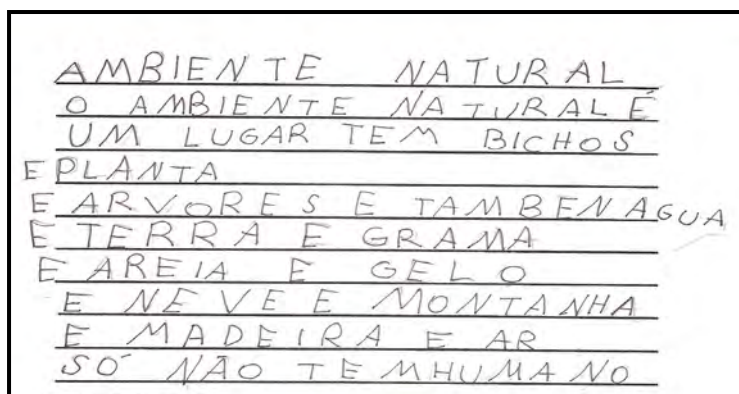 AMBIENTE NATURAL
O AMBIENTE NATURAL É
UM LUGAR TEM BICHOS
E PLANTA
E ARVORES E TAMBEN AGUA
E TERRA E GRAMA
E AREIA E GELO
E NEVE E MONTANHA
E MADEIRA E AR
SÓ NÃO TEM HUMANO